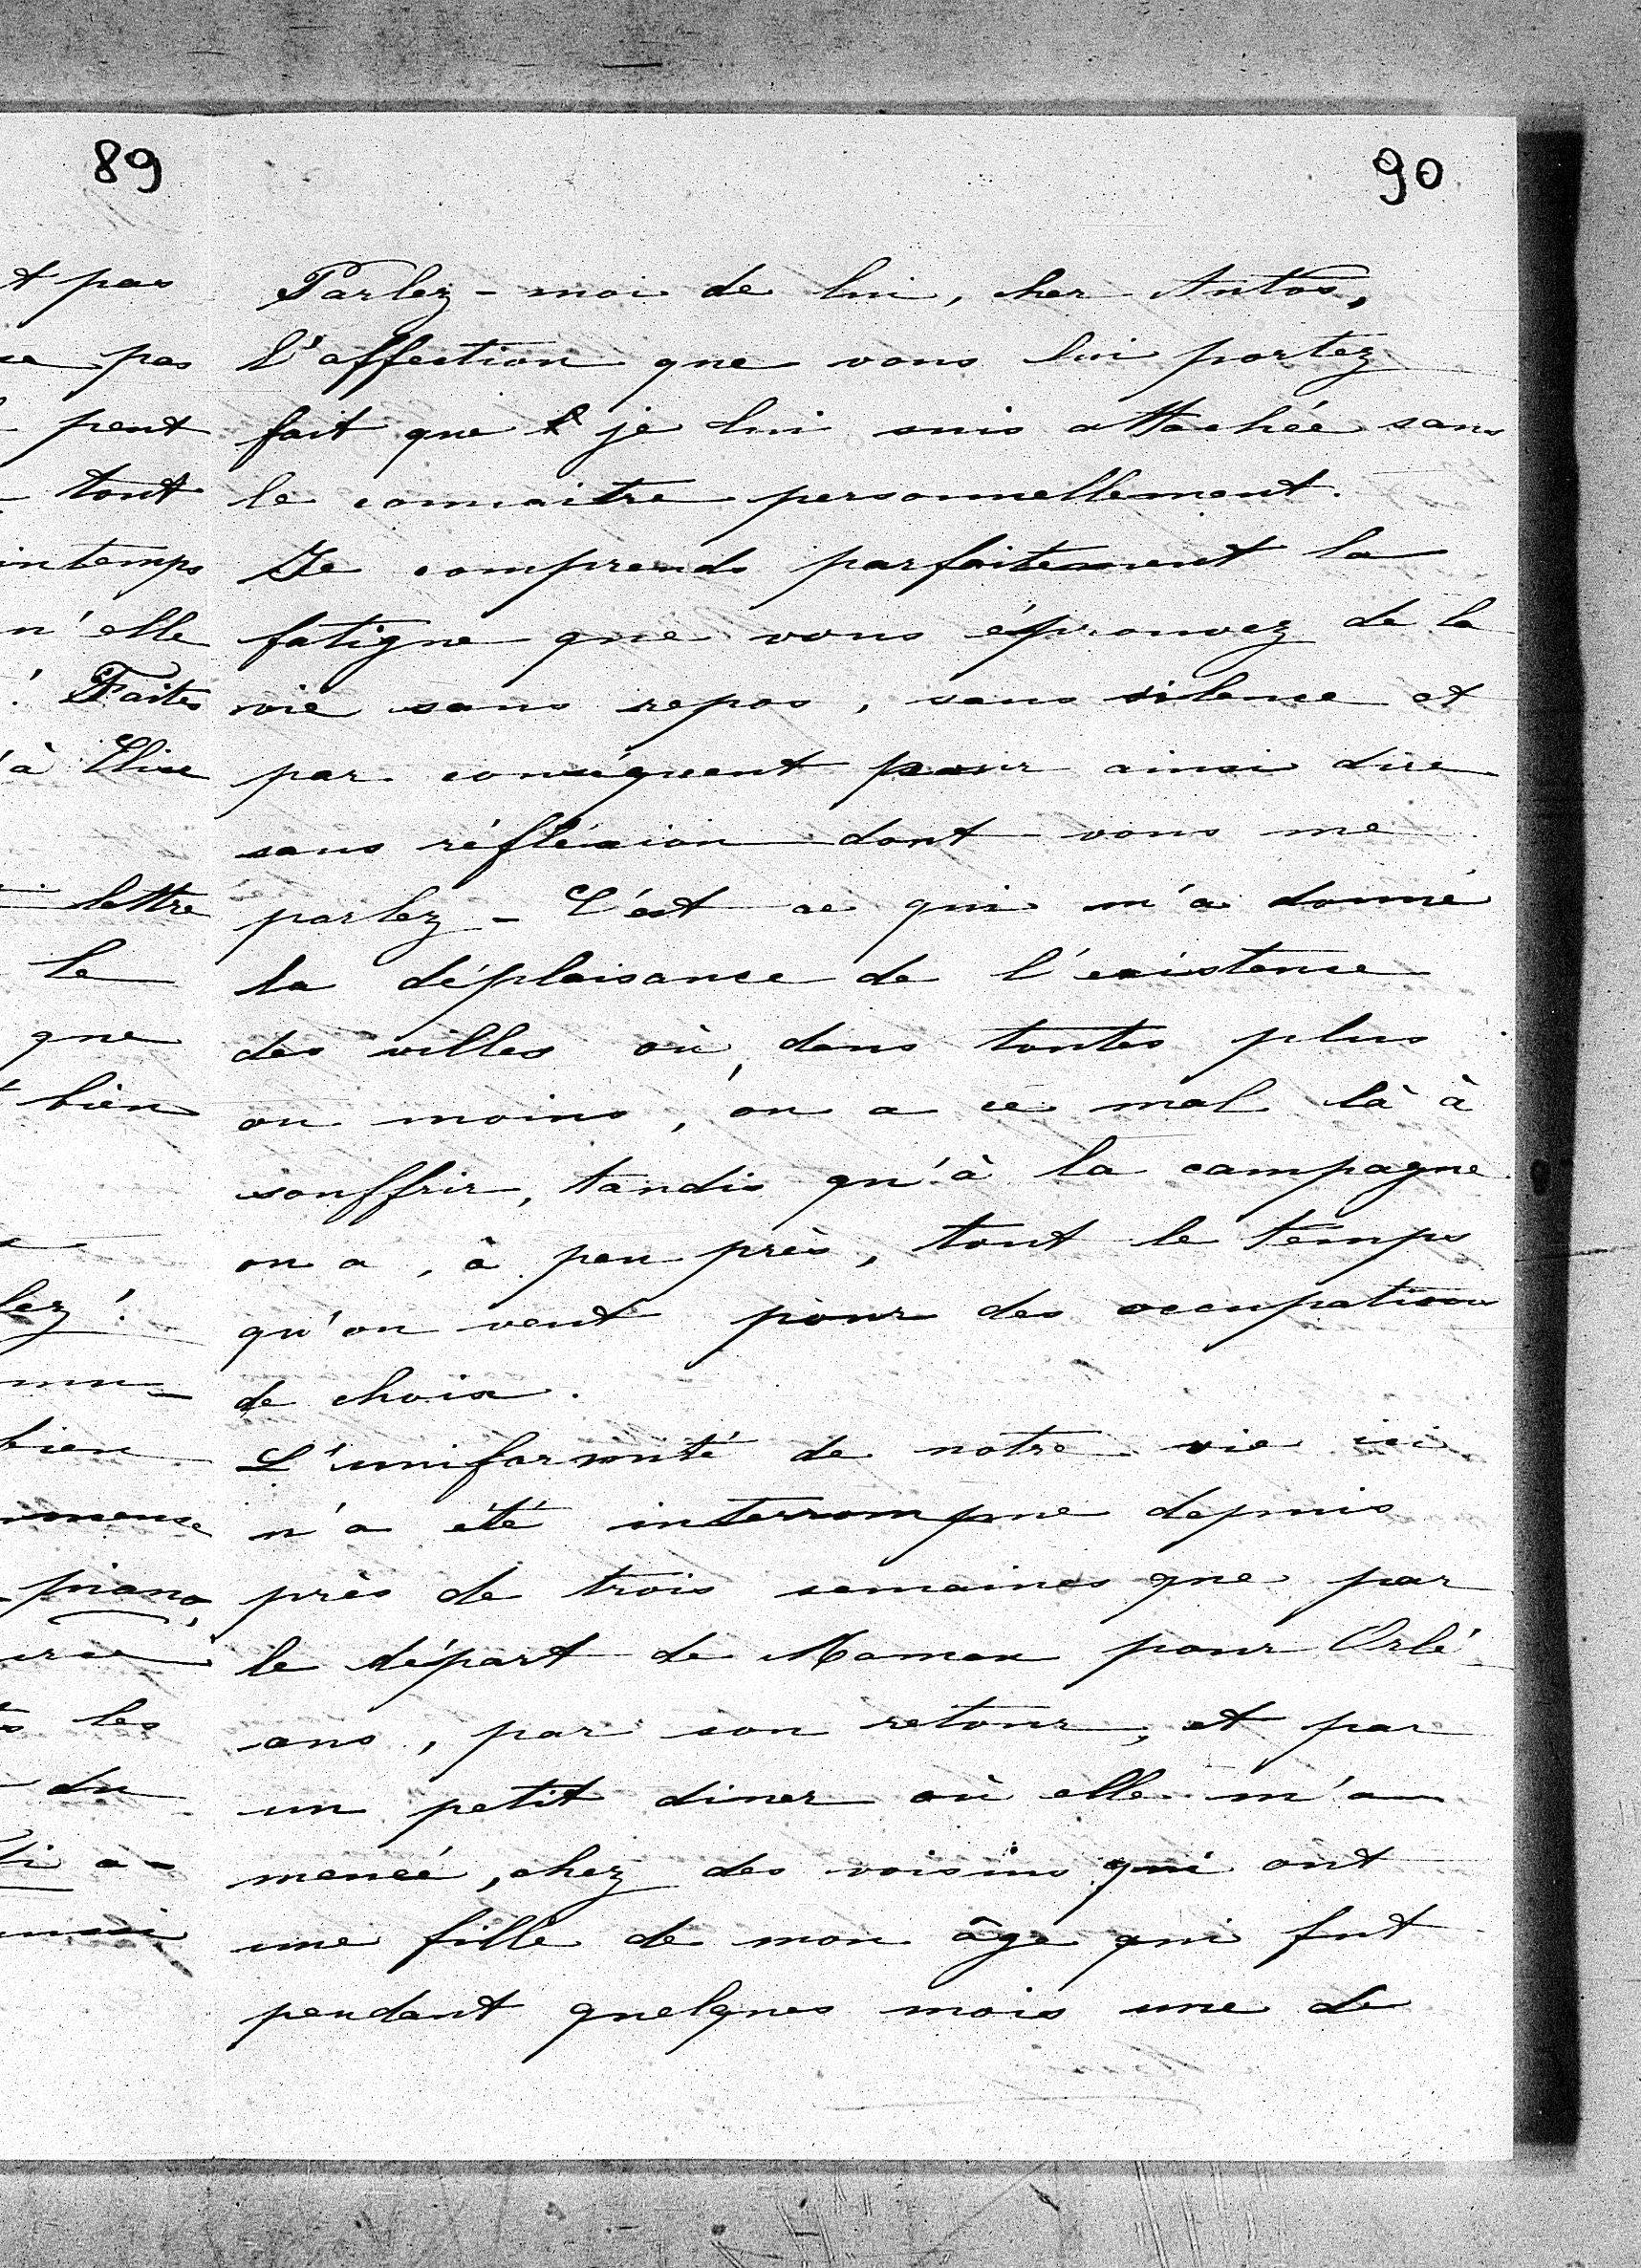 89
t pas
pas
peut
tout
intemps
n'elle
! Faites
'à Elise
lettre
le
que
bien
lez!
bien
piano,
les
du
a-
90
Parlez-moi de lui, cher Antos,
l'affection que vous lui portez
fait que je lui suis attachée sans
le connaitre personnellement.
Je comprends parfaitement la
fatigue que vous éprouvez de la
vie sans repos, sans silence et
par conséquent pour ainsi dire
sans réfléxion dont vous me
parlez - C'est ce qui m'a donné
la déplaisance de l'existence
des villes où, dans toutes plus
ou moins, on a ce mal là à
souffrir, tandis qu'à la campagne
on a, à peu près, tout le temps
qu'on veut pour des occupations
de choix.
L'uniformité de notre vie ici
n'a été interrompue depuis
près de trois semaines que par
le départ de Maman pour Orlé-
ans, par son retour, et par
un petit diner où elle m'a
menée, chez des voisins qui ont
une fille de mon âge qui fut
pendant quelques mois une de